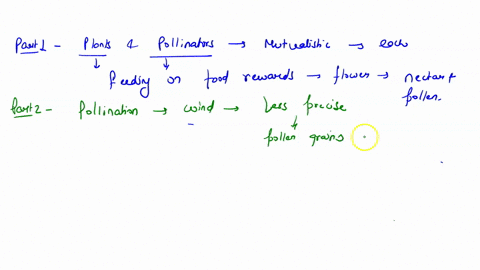 Part 1 - Plants & Pollinators → Mutualistic → each
feeding on food rewards → flower → nectar &
pollen.
Part 2 - Pollination → wind → Less precise
pollen grains